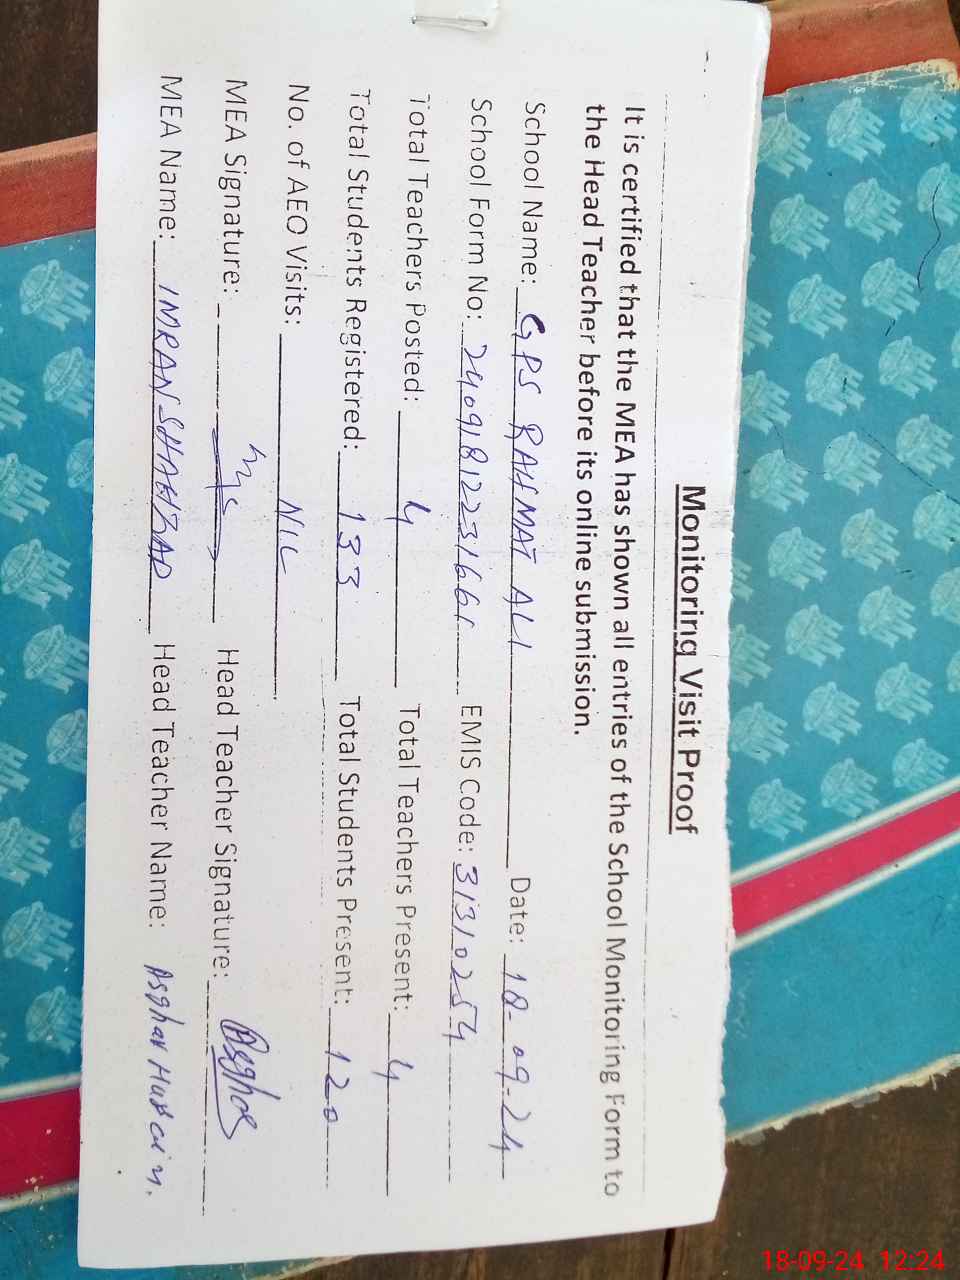 Monitoring Visit Proof
It is certified that the MEA has shown all entries of the School Monitoring Form to
the Head Teacher before its online submission.
School Name: GPS RAHMAT ALI Date: 18-09-24
School Form No: 24091812231661 EMIS Code: 31310254
Total Teachers Posted: 4 Total Teachers Present: 4
Total Students Registered: 133 Total Students Present: 120
No. of AEO Visits: NIL
MEA Signature: Head Teacher Signature: Asghar
MEA Name: IMRAN SHAHZAD Head Teacher Name: Asghar Hussain.
18-09-24 12:24